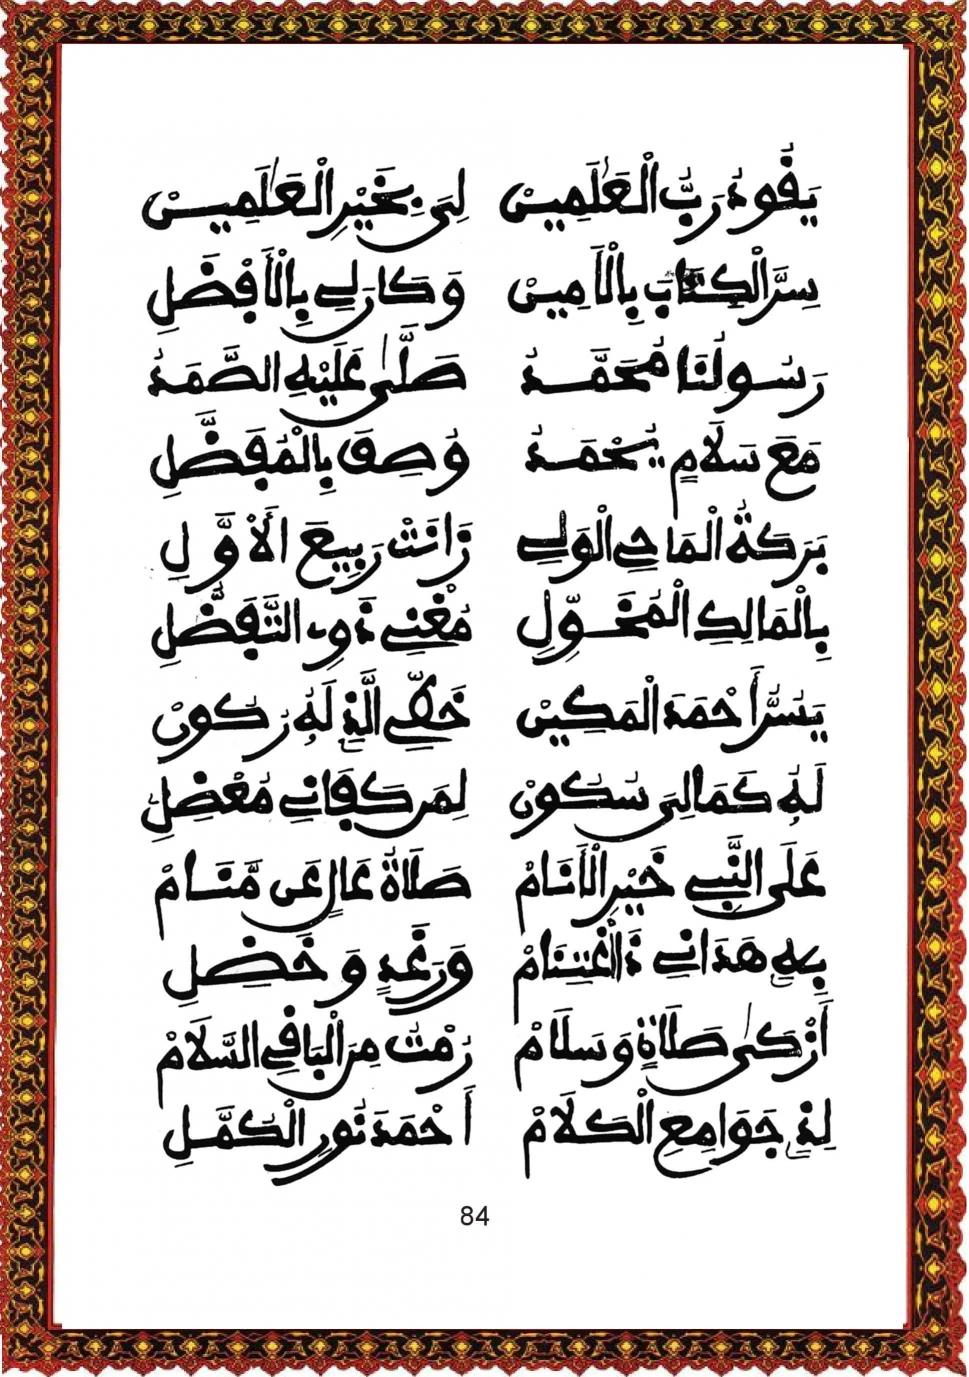 يَقُودُ رَبُّ الْعَٰلَمِينْ لِىَ بِخَيْرِ الْعَٰلَمِينْ
سِرَّ الْكِتَابِ بِالْأَمِينْ وَكَانَ لِي بِالْأَفْضَلِ
رَسُولُنَا مُحَمَّدُ صَلَّىٰ عَلَيْهِ الصَّمَدُ
مَعَ سَلَامٍ يُحْمَدُ وُصِفَ بِالْمُفَضَّلِ
بَرَكَةُ الْمَاحِي الْوَلِي زَانَتْ رَبِيعَ الْأَوَّلِ
بِالْمَالِكِ الْمُخَوِّلِ مُغْنِي ذَوِى التَّفَضُّلِ
يَسُرُّ أَحْمَدَ الْمَكِينْ خَطِّي الَّذِي لَهُ رُكُونْ
لَهُ كَمَا لِىَ سُكُونْ لِمَن كَفَانِي مُعْضِلِ
عَلَى النَّبِي خَيْرِ الْأَنَامْ صَلَاةُ عَالٍ عَن مَّنَامْ
بِهِ هَدَانِي ذَا اغْتِنَامْ وَرَغَدٍ وَخَضِلِ
أَزْكَىٰ صَلَاةٍ وَسَلَامْ رُمْتُ مِنَ الْبَاقِي السَّلَامْ
لِذِي جَوَامِعِ الْكَلَامْ أَحْمَدَ نُورِ الْكُمَّلِ
84